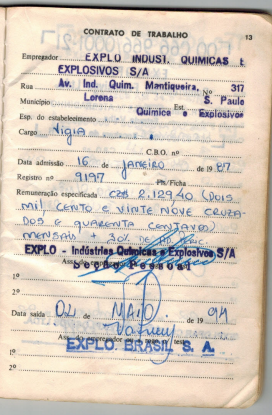 CONTRATO DE TRABALHO 13
Empregador EXPLO INDUST. QUIMICAS E
EXPLOSIVOS S/A
Rua Av. Ind. Quim. Mantiqueira, Nº 317
Município Lorena Est. S. Paulo
Esp. do estabelecimento Quimica e Explosivos
Cargo Vigia
C.B.O. nº
Data admissão 16 de JANEIRO de 19 87
Registro nº 9197 Fls/Ficha
Remuneração especificada CZ$ 2.129,40 (DOIS
MIL CENTO E VINTE NOVE CRUZA-
DOS E QUARENTA CENTAVOS)
MENSAIS + 30%
EXPLO - Indústrias Químicas e Explosivos S/A
Secção Pessoal
1º
2º
Data saída 02 de MAIO de 19 94
EXPLO BRASIL S. A.
1º
2º